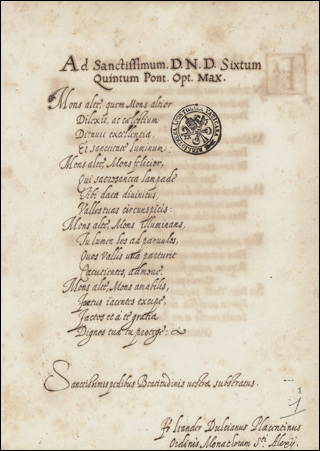 Ad Sanctissimum. D. N. D. Sixtum
Quintum Pont. Opt. Max.
Mons alter, quem Mons altior
Dilexit, ac caelestium
Ditavit excellentia,
Et sanctitate luminum.
Mons alter, Mons felicior,
Qui sacrosancta lampade
Tibi data divinitus,
Valles tuas circunspicis:
Mons alter, Mons illuminans,
Tu lumen hos ad parvulos,
Quos Vallis una parturit
Caecutientes, admove.
Mons alter, Mons amabilis,
Foetus iacentes excipe,
Factos et à te gratia
Dignos tua tu protege:
Sanctissimis pedibus Beatitudinis vestrae substratus.
1
Dulcianus Placentinus
Ordinis Monacorum Sti. Alexij.